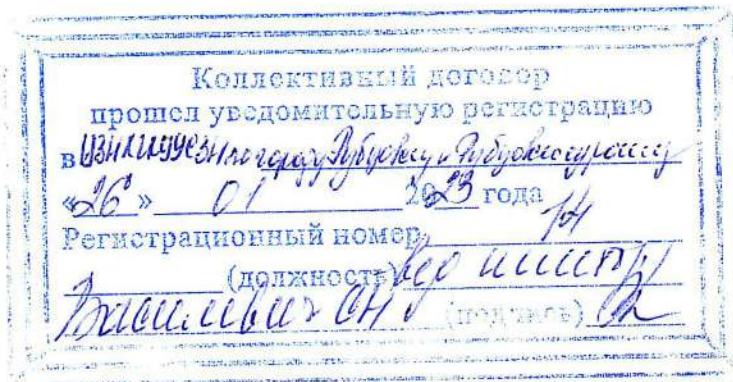 Коллективный договор
прошел уведомительную регистрацию
в по городу Рубцовску и Рубцовскому району
«26» 01 2023 года
Регистрационный номер 14
(должность) вед инспектор
Василевич ОН (подпись)